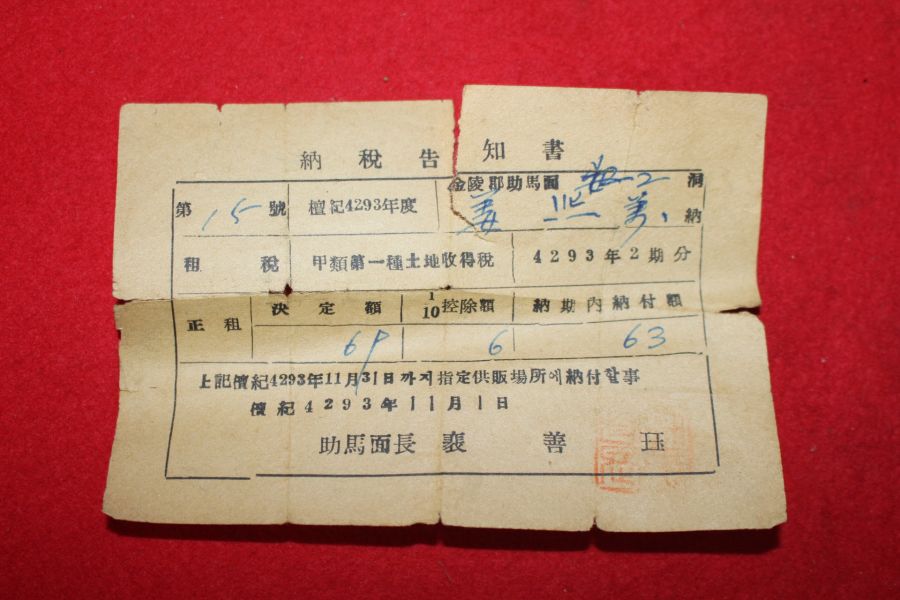 納稅告知書
金陵郡助馬面 洞
第15號 檀紀4293年度 姜 熙 納
租稅 甲類第一種土地收得稅 4293年2期分
正租 決定額 1/10控除額 納期內納付額
69 6 63
上記檀紀4293年11月31日까지指定供販場所에納付할事
檀紀4293年11月1日
助馬面長 裵善玨